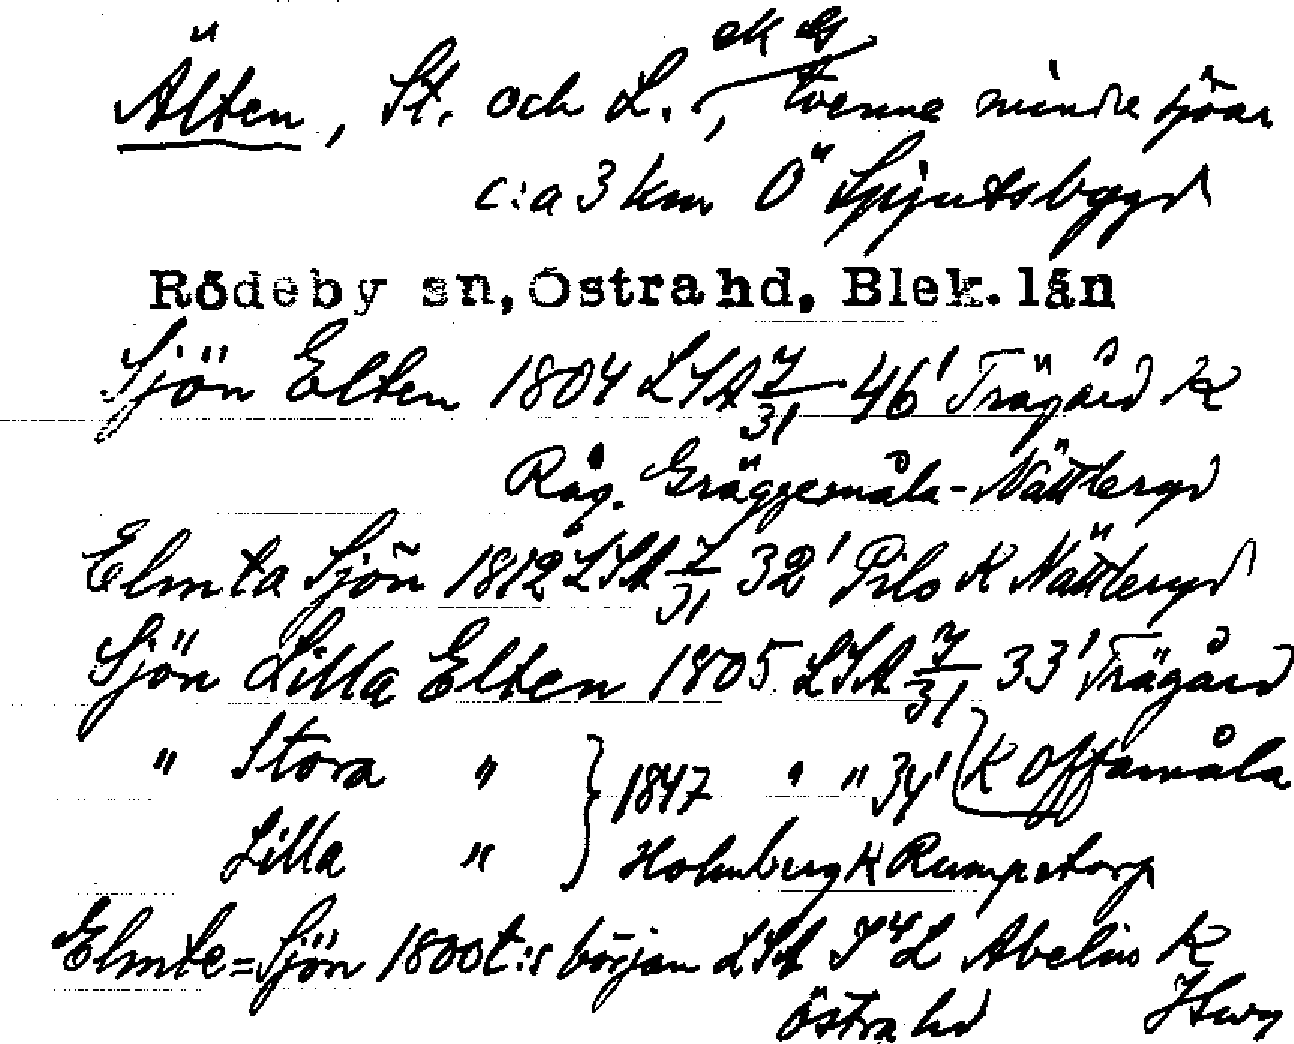 ek Bl
Älten, St. och L., tvenne mindre sjöar
c:a 3 km Ö Spjutsbygd
Rödeby sn, Östra hd, Blek. län
Sjön Elten 1804 LSA 7/31 46' Trägård K
Råg. Gräggemåla-Nättbergd
Elmta Sjön 1812 LSA 7/31 32' Pilo K Nättbergd
Sjön Lilla Elten 1805 LSA 7/31 33' Trägård
" Stora " } 1847 " " 34' (K Offamåla
Lilla " } Holmberg K Rumpetorp
Elmte=Sjön 1800t:s början LSA Abelin K
Östra hd